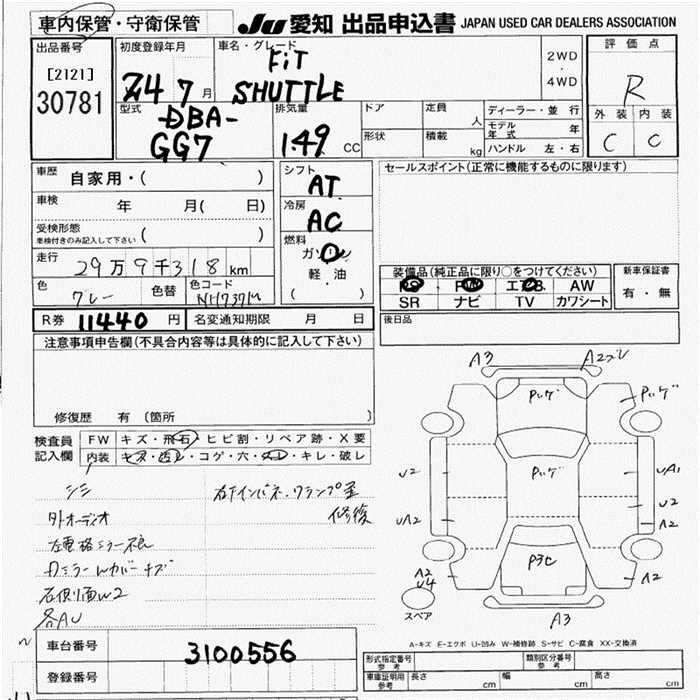 車内保管・守衛保管
JU 愛知 出品申込書 JAPAN USED CAR DEALERS ASSOCIATION
出品番号
[2121]
30781
初度登録年月
24 7 月
車名・グレード
FiT
SHUTTLE
2WD
・
4WD
評価点
R
外装 内装
C C
型式
DBA-
GG7
排気量
1.49 CC
ドア
定員 人
形状
積載 kg
ディーラー・並行
モデル年式 年
ハンドル 左・右
車歴 自家用・( )
車検 年 月( 日)
受検形態
車検付きのみ記入して下さい ( )
走行 29万9千318km
色 グレー 色替 色コード NH737M
シフト AT
冷房 AC
燃料
ガソリン
軽・油
( )
セールスポイント(正常に機能するものに限ります)
装備品(純正品に限り○をつけてください)
PS PW エアB AW
SR ナビ TV カワシート
新車保証書
有・無
R券 11440 円 名変通知期限 月 日
後日品
注意事項申告欄(不具合内容等は具体的に記入して下さい)
修復歴 有 〔箇所 〕
検査員記入欄
FW キズ・飛石・ヒビ割・リペア跡・X要
内装 キズ・汚レ・コゲ・穴・スレ・キレ・破レ
シミ
外オーディオ
右側面W2
各AU
修復
A3 A2
U2 UA1
UA2 U2
A2
A2
U4
A2
P3C
A3
スペア
A-キズ E-エクボ U-凹み W-補修跡 S-サビ C-腐食 XX-交換済
車台番号 3100556
登録番号
形式指定番号 参考
類別区分番号 参考
車庫証明用 参考 長さ cm 幅 cm 高さ cm